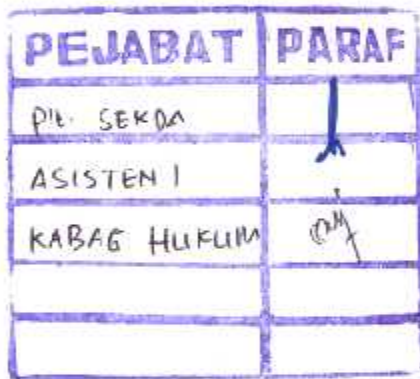 PEJABAT PARAF
Plt. SEKDA
ASISTEN I
KABAG HUKUM